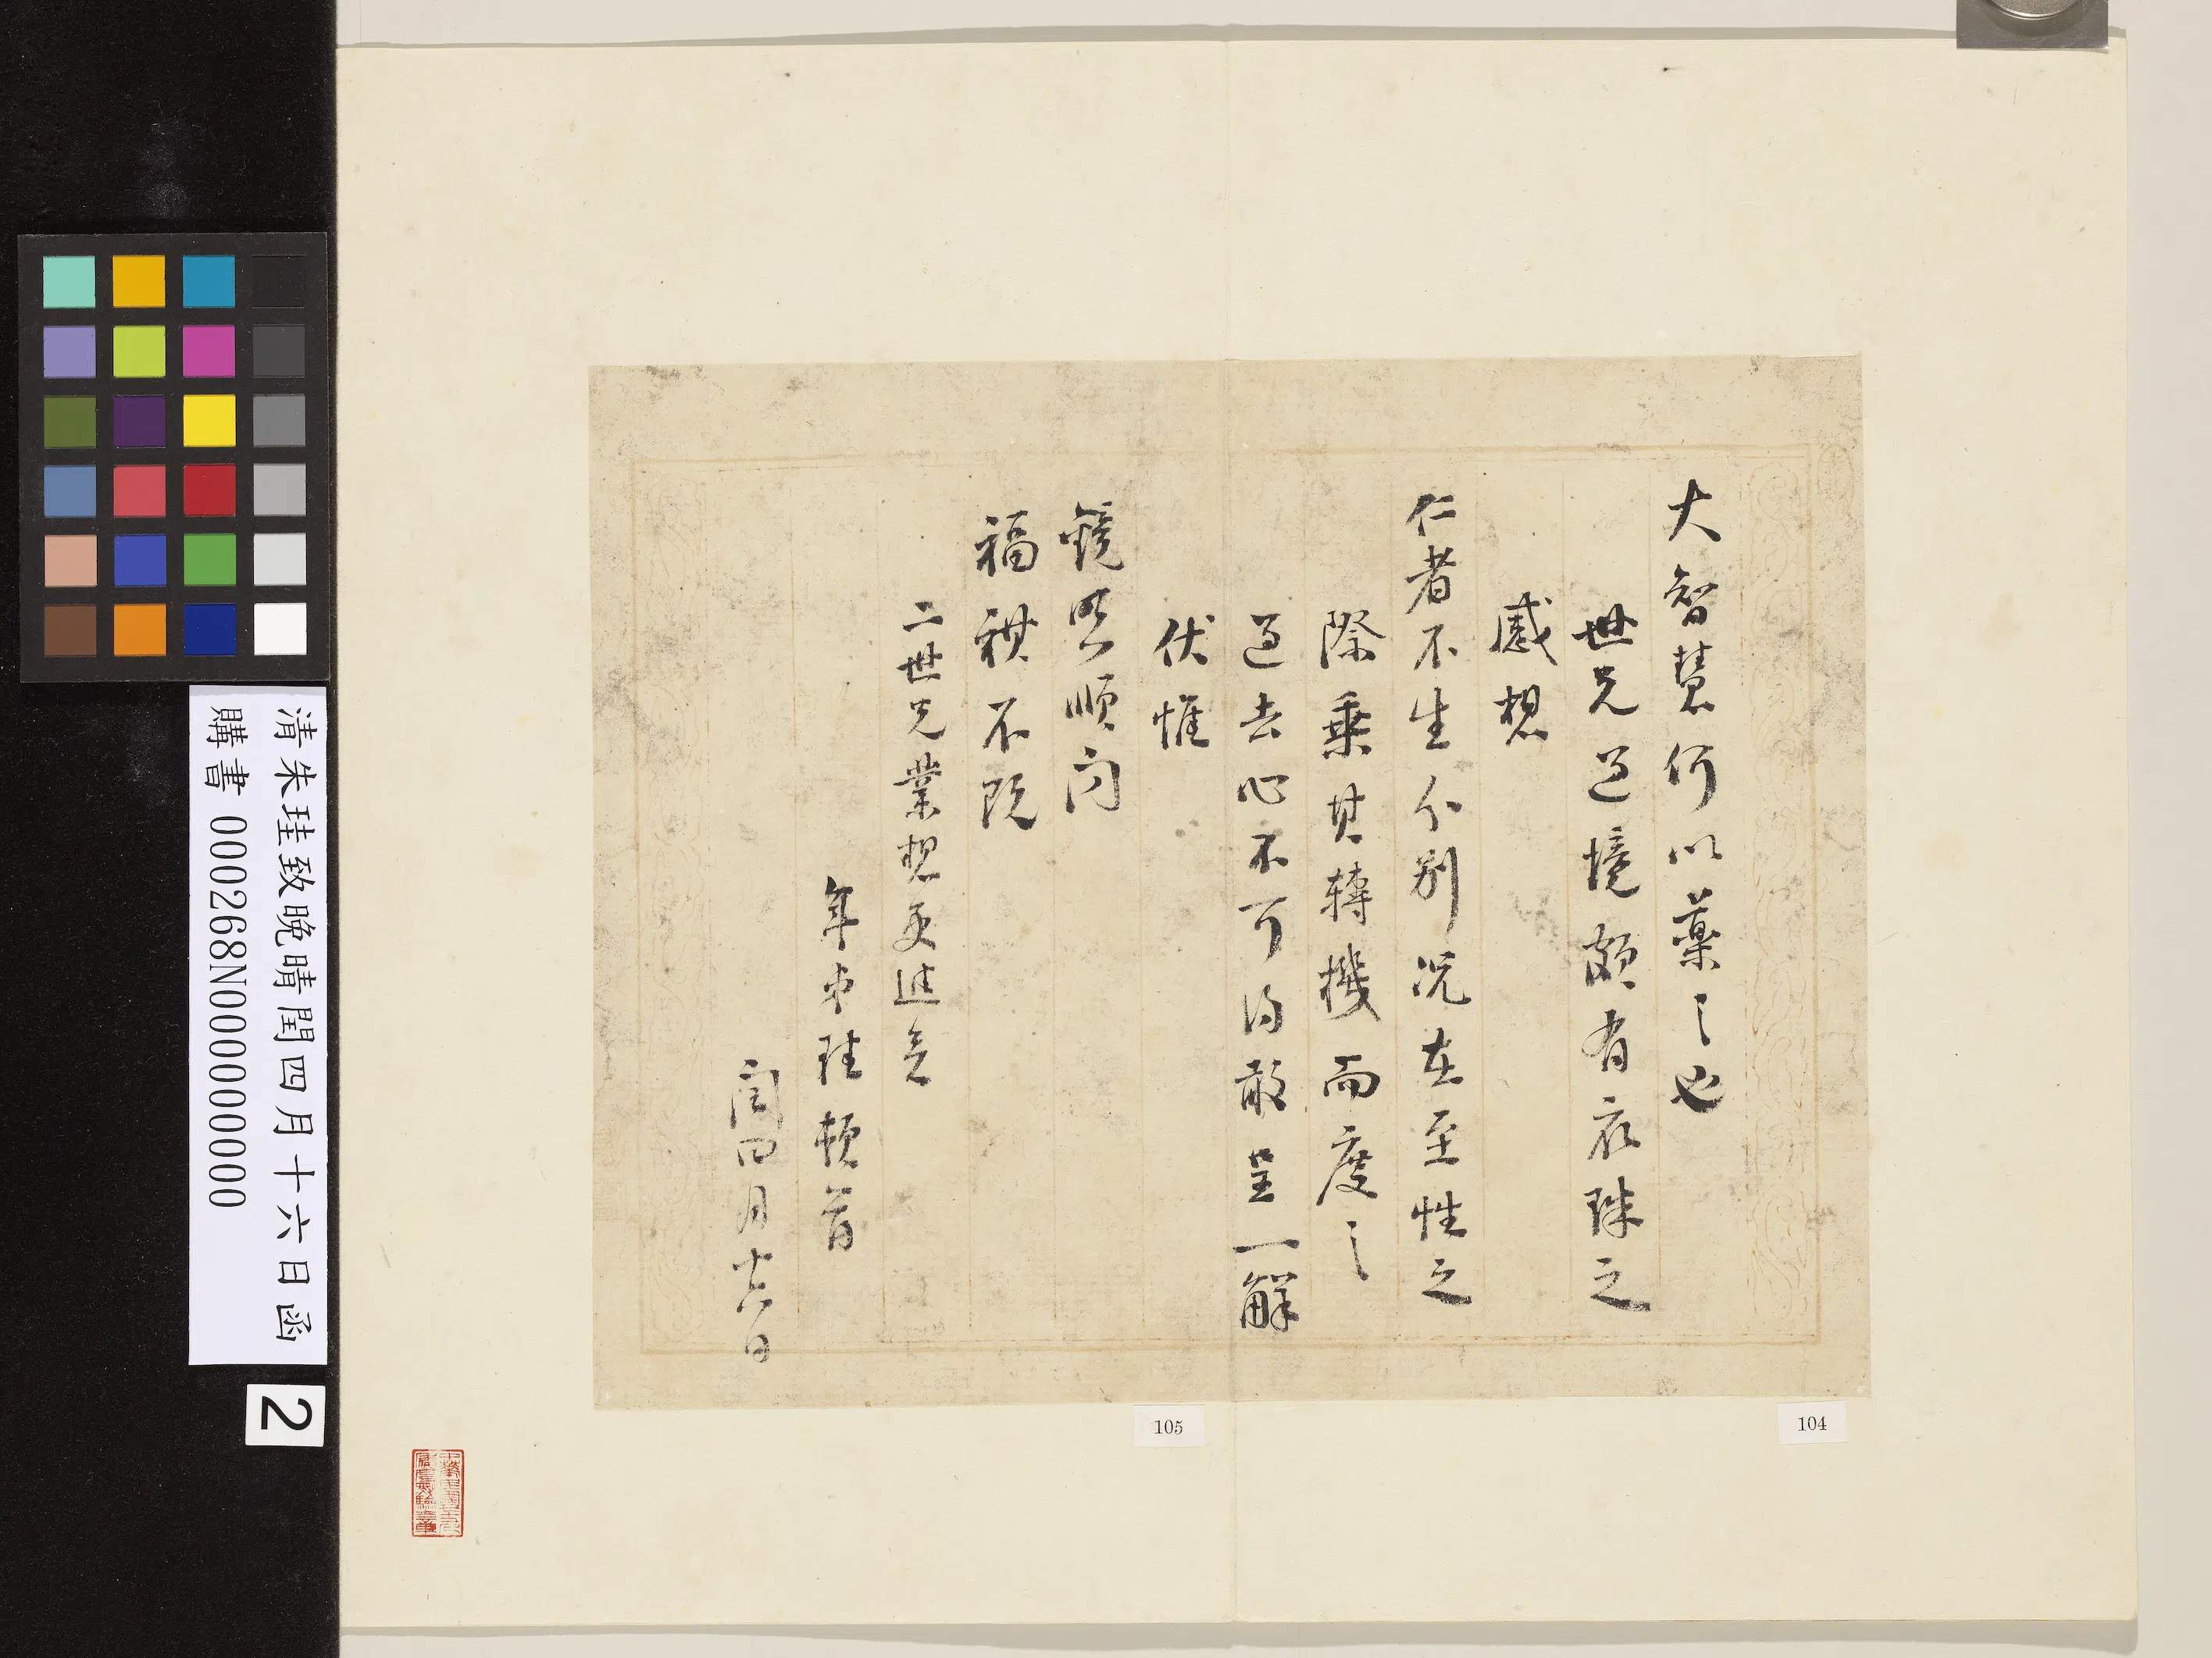 大智慧何以藥之也
世兄過境頗有衣珠之
感想
仁者不生分別况在至性之
際乘其轉機而度之
過去心不可得敢呈一解
伏惟
鏡照順問
福祺不既
二世兄業想更進矣
年弟珪頓首
閏四月十六日
104
105
清朱珪致晚晴閏四月十六日函
購書 000268N000000000
2